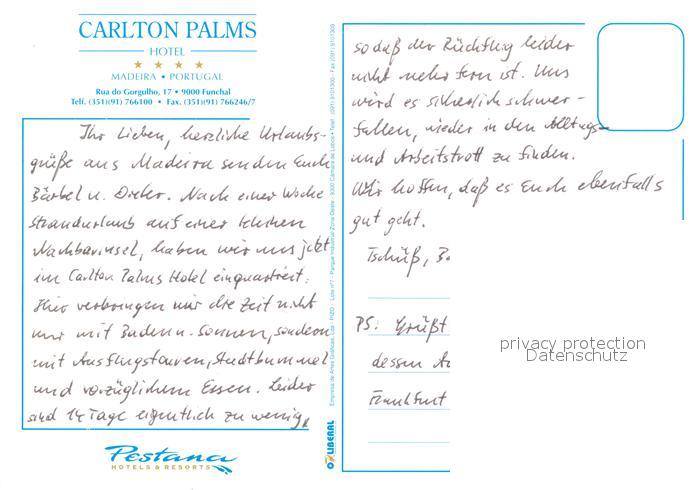 CARLTON PALMS
HOTEL
MADEIRA • PORTUGAL
Rua do Gorgulho, 17 • 9000 Funchal
Telf. (351)(91) 766100 • Fax. (351)(91) 766246/7
Ihr Lieben, herzliche Urlaubs-
grüße aus Madeira senden Euch
Bärbel u. Dieter. Nach einer Woche
Strandurlaub auf einer kleinen
Nachbarinsel, haben wir uns jetzt
im Carlton Palms Hotel einquartiert.
Hier verbringen wir die Zeit nicht
nur mit Baden u. Sonnen, sondern
mit Ausflugstouren, Stadtbummel
und vorzüglichem Essen. Leider
sind 14 Tage eigentlich zu wenig,
Pestana
HOTELS & RESORTS
O LIBERAL
so daß der Rückflug leider
nicht mehr fern ist. Uns
wird es sicherlich schwer-
fallen, wieder in den Alltags-
und Arbeitstrott zu finden.
Wir hoffen, daß es Euch ebenfalls
gut geht.
Tschüß, B.
PS: Grüßt
dessen
Frankfurt
privacy protection
Datenschutz